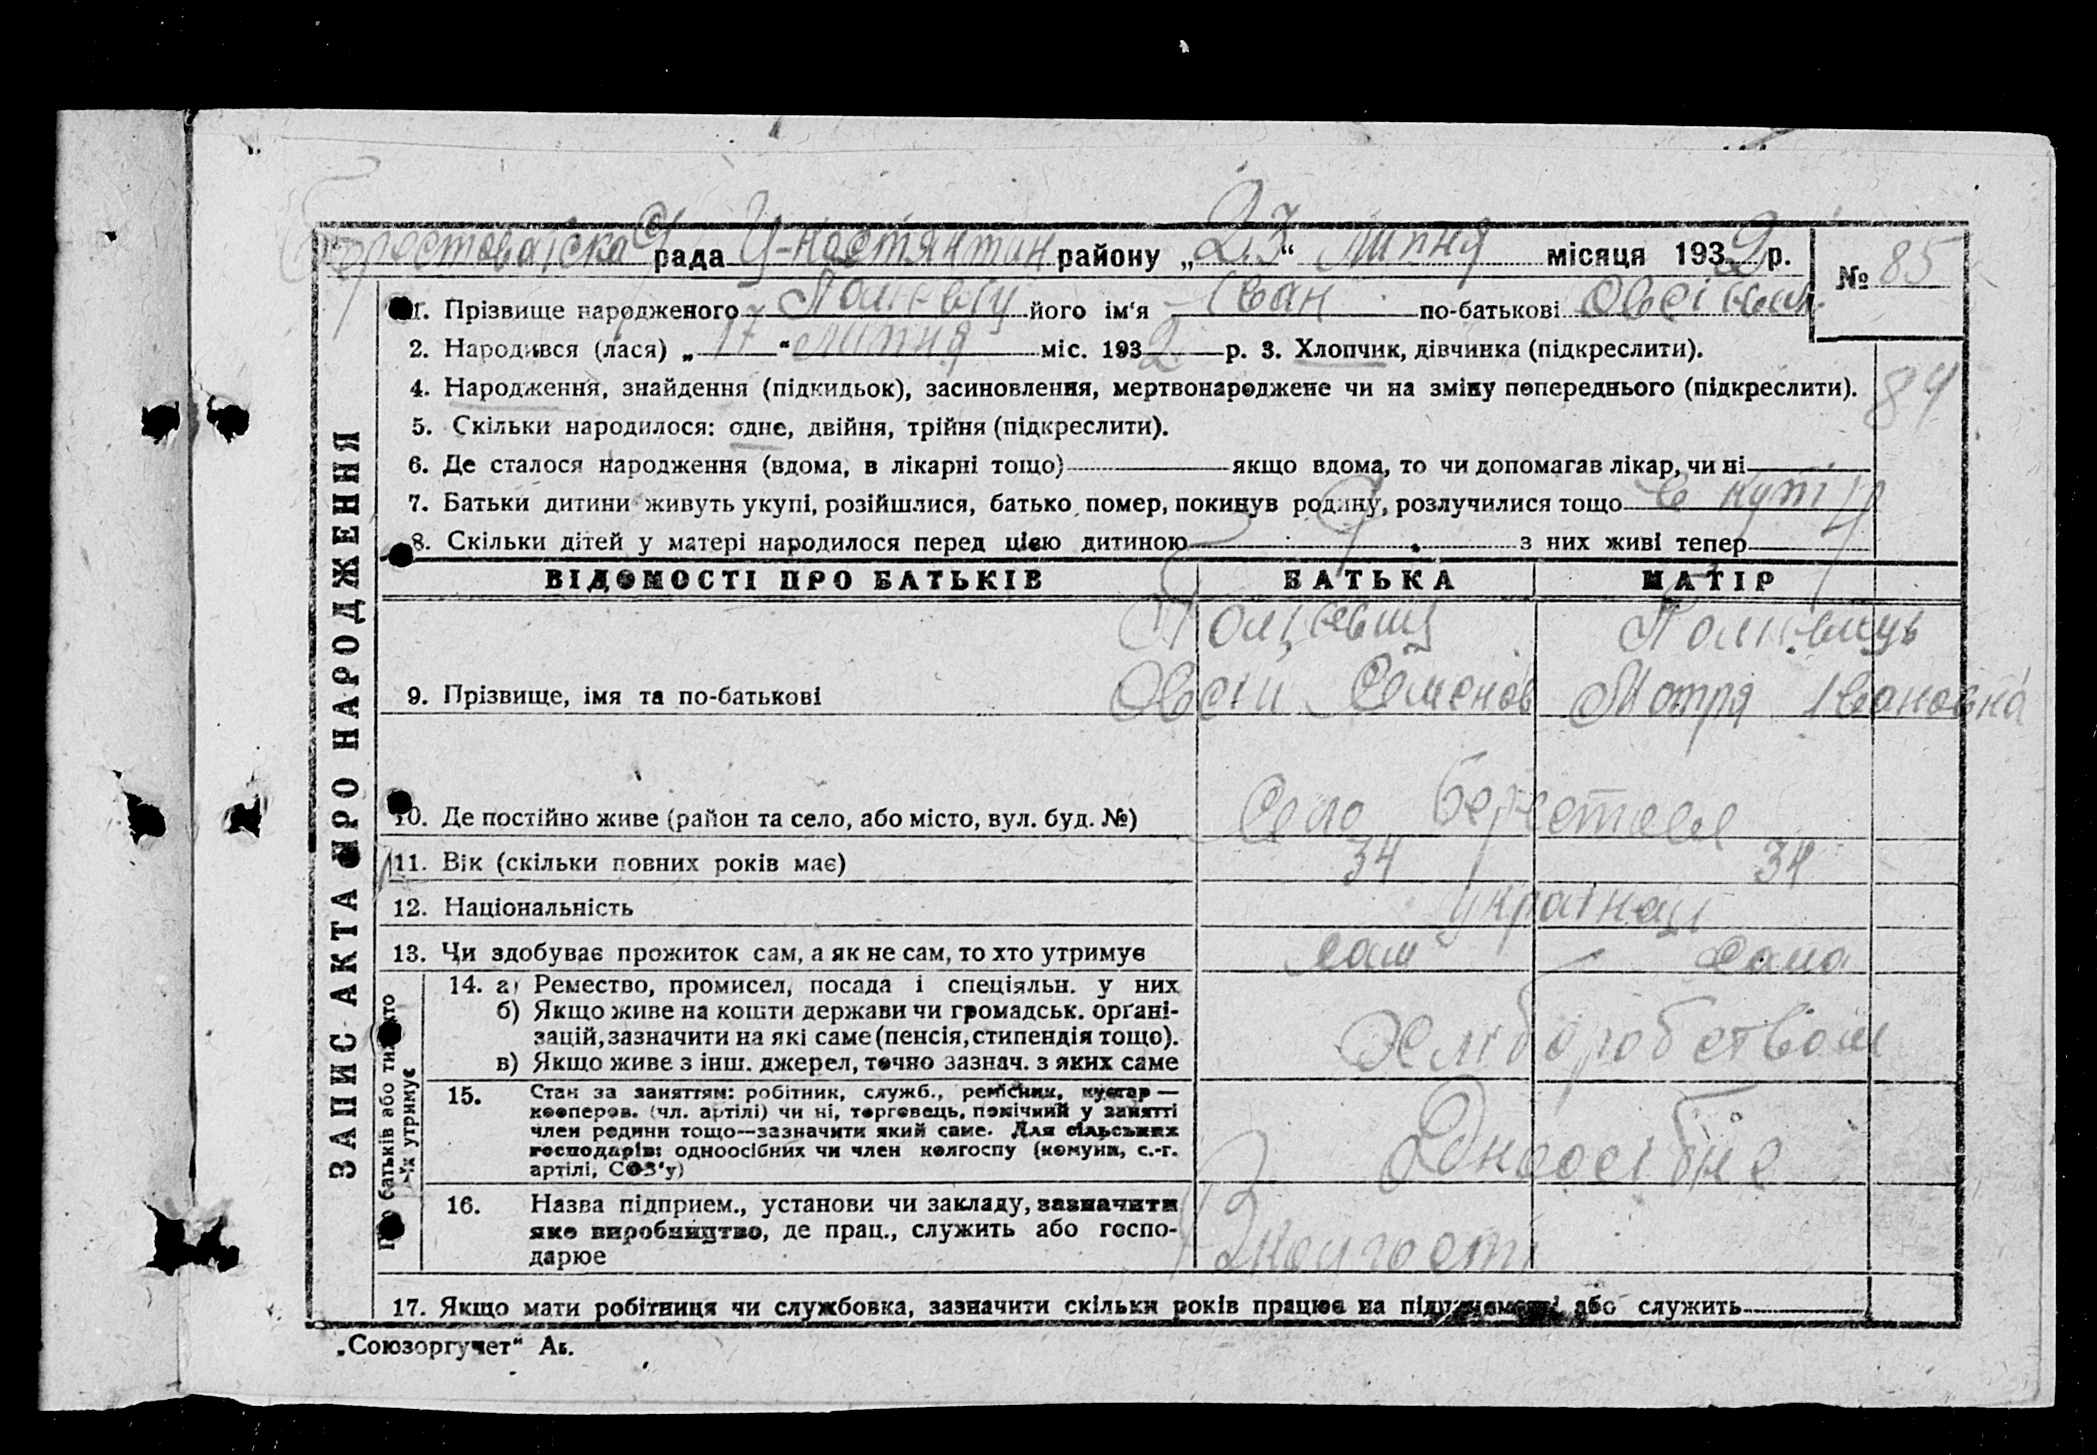 рада района „23“ липня місяця 193 р.
№ 85
1. Прізвище народженого його ім'я Іван по-батькові
2. Народився (лася) „17“ липня міс. 1932 р. 3. Хлопчик, дівчинка (підкреслити).
84
4. Народження, знайдення (підкидьок), засиновлення, мертвонароджене чи на зміну попереднього (підкреслити).
5. Скільки народилося: одне, двійня, трійня (підкреслити).
6. Де сталося народження (вдома, в лікарні тощо) якщо вдома, то чи допомагав лікар, чи ні
7. Батьки дитини живуть укупі, розійшлися, батько помер, покинув родину, розлучилися тощо в купі
8. Скільки дітей у матері народилося перед цією дитиною з них живі тепер 4
ЗАПИС АКТА ПРО НАРОДЖЕННЯ
ВІДОМОСТІ ПРО БАТЬКІВ БАТЬКА МАТІР
9. Прізвище, імя та по-батькові Семенов Мотря Івановна
10. Де постійно живе (район та село, або місто, вул. буд. №) Село
11. Вік (скільки повних років має) 34 34
12. Національність українці
13. Чи здобуває прожиток сам, а як не сам, то хто утримує сам – сама
батьків або тих, хто
їх утримує
14. а) Ремество, промисел, посада і спеціяльн. у них
б) Якщо живе на кошти держави чи громадськ. орґані-
зацій, зазначити на які саме (пенсія, стипендія тощо).
в) Якщо живе з інш. джерел, точно зазнач. з яких саме
Хліборобством
15. Стан за заняттям: робітник, служб., ремісник, кустар —
кооперов. (чл. артілі) чи ні, торговець, помічний у занятті
член родини тощо—зазначити який саме. Для сільських
господарів: одноосібних чи член колгоспу (комуни, с.-г.
артілі, СОЗ'у)
Одноосібне
16. Назва підприєм., установи чи закладу, зазначити
яке виробництво, де прац., служить або госпо-
дарює
17. Якщо мати робітниця чи службовка, зазначити скільки років працює на підприємстві або служить
„Союзоргучет“